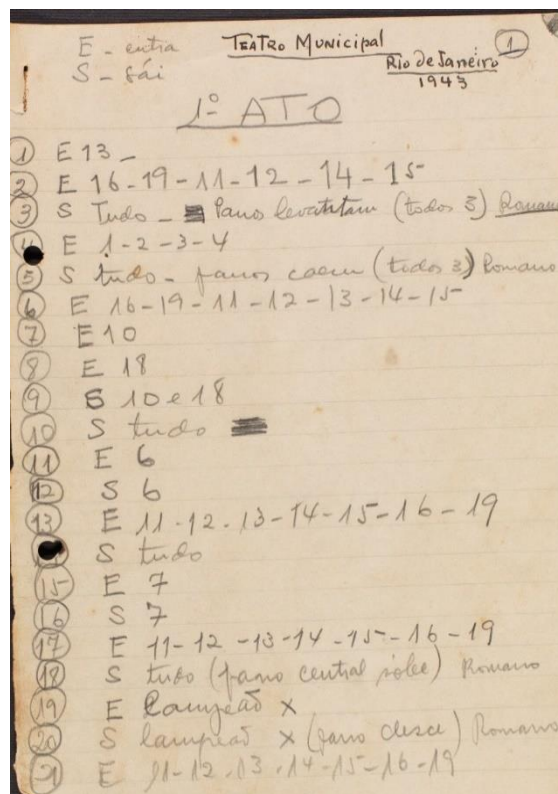 E - entra
S - sái
TEATRO MUNICIPAL
Rio de Janeiro
1943
1
1º ATO
1 E 13 -
2 E 16-19-11-12-14-15
3 S Tudo - Panos levantam (todos 3) Romano
4 E 1-2-3-4
5 S tudo - panos caem (todos 3) Romano
6 E 16-19-11-12-13-14-15
7 E 10
8 E 18
9 S 10 e 18
10 S tudo
11 E 6
12 S 6
13 E 11-12-13-14-15-16-19
S tudo
15 E 7
16 S 7
17 E 11-12-13-14-15-16-19
18 S tudo (pano central sobe) Romano
19 E Lampeão X
20 S lampeão X (pano desce) Romano
21 E 11-12-13-14-15-16-19